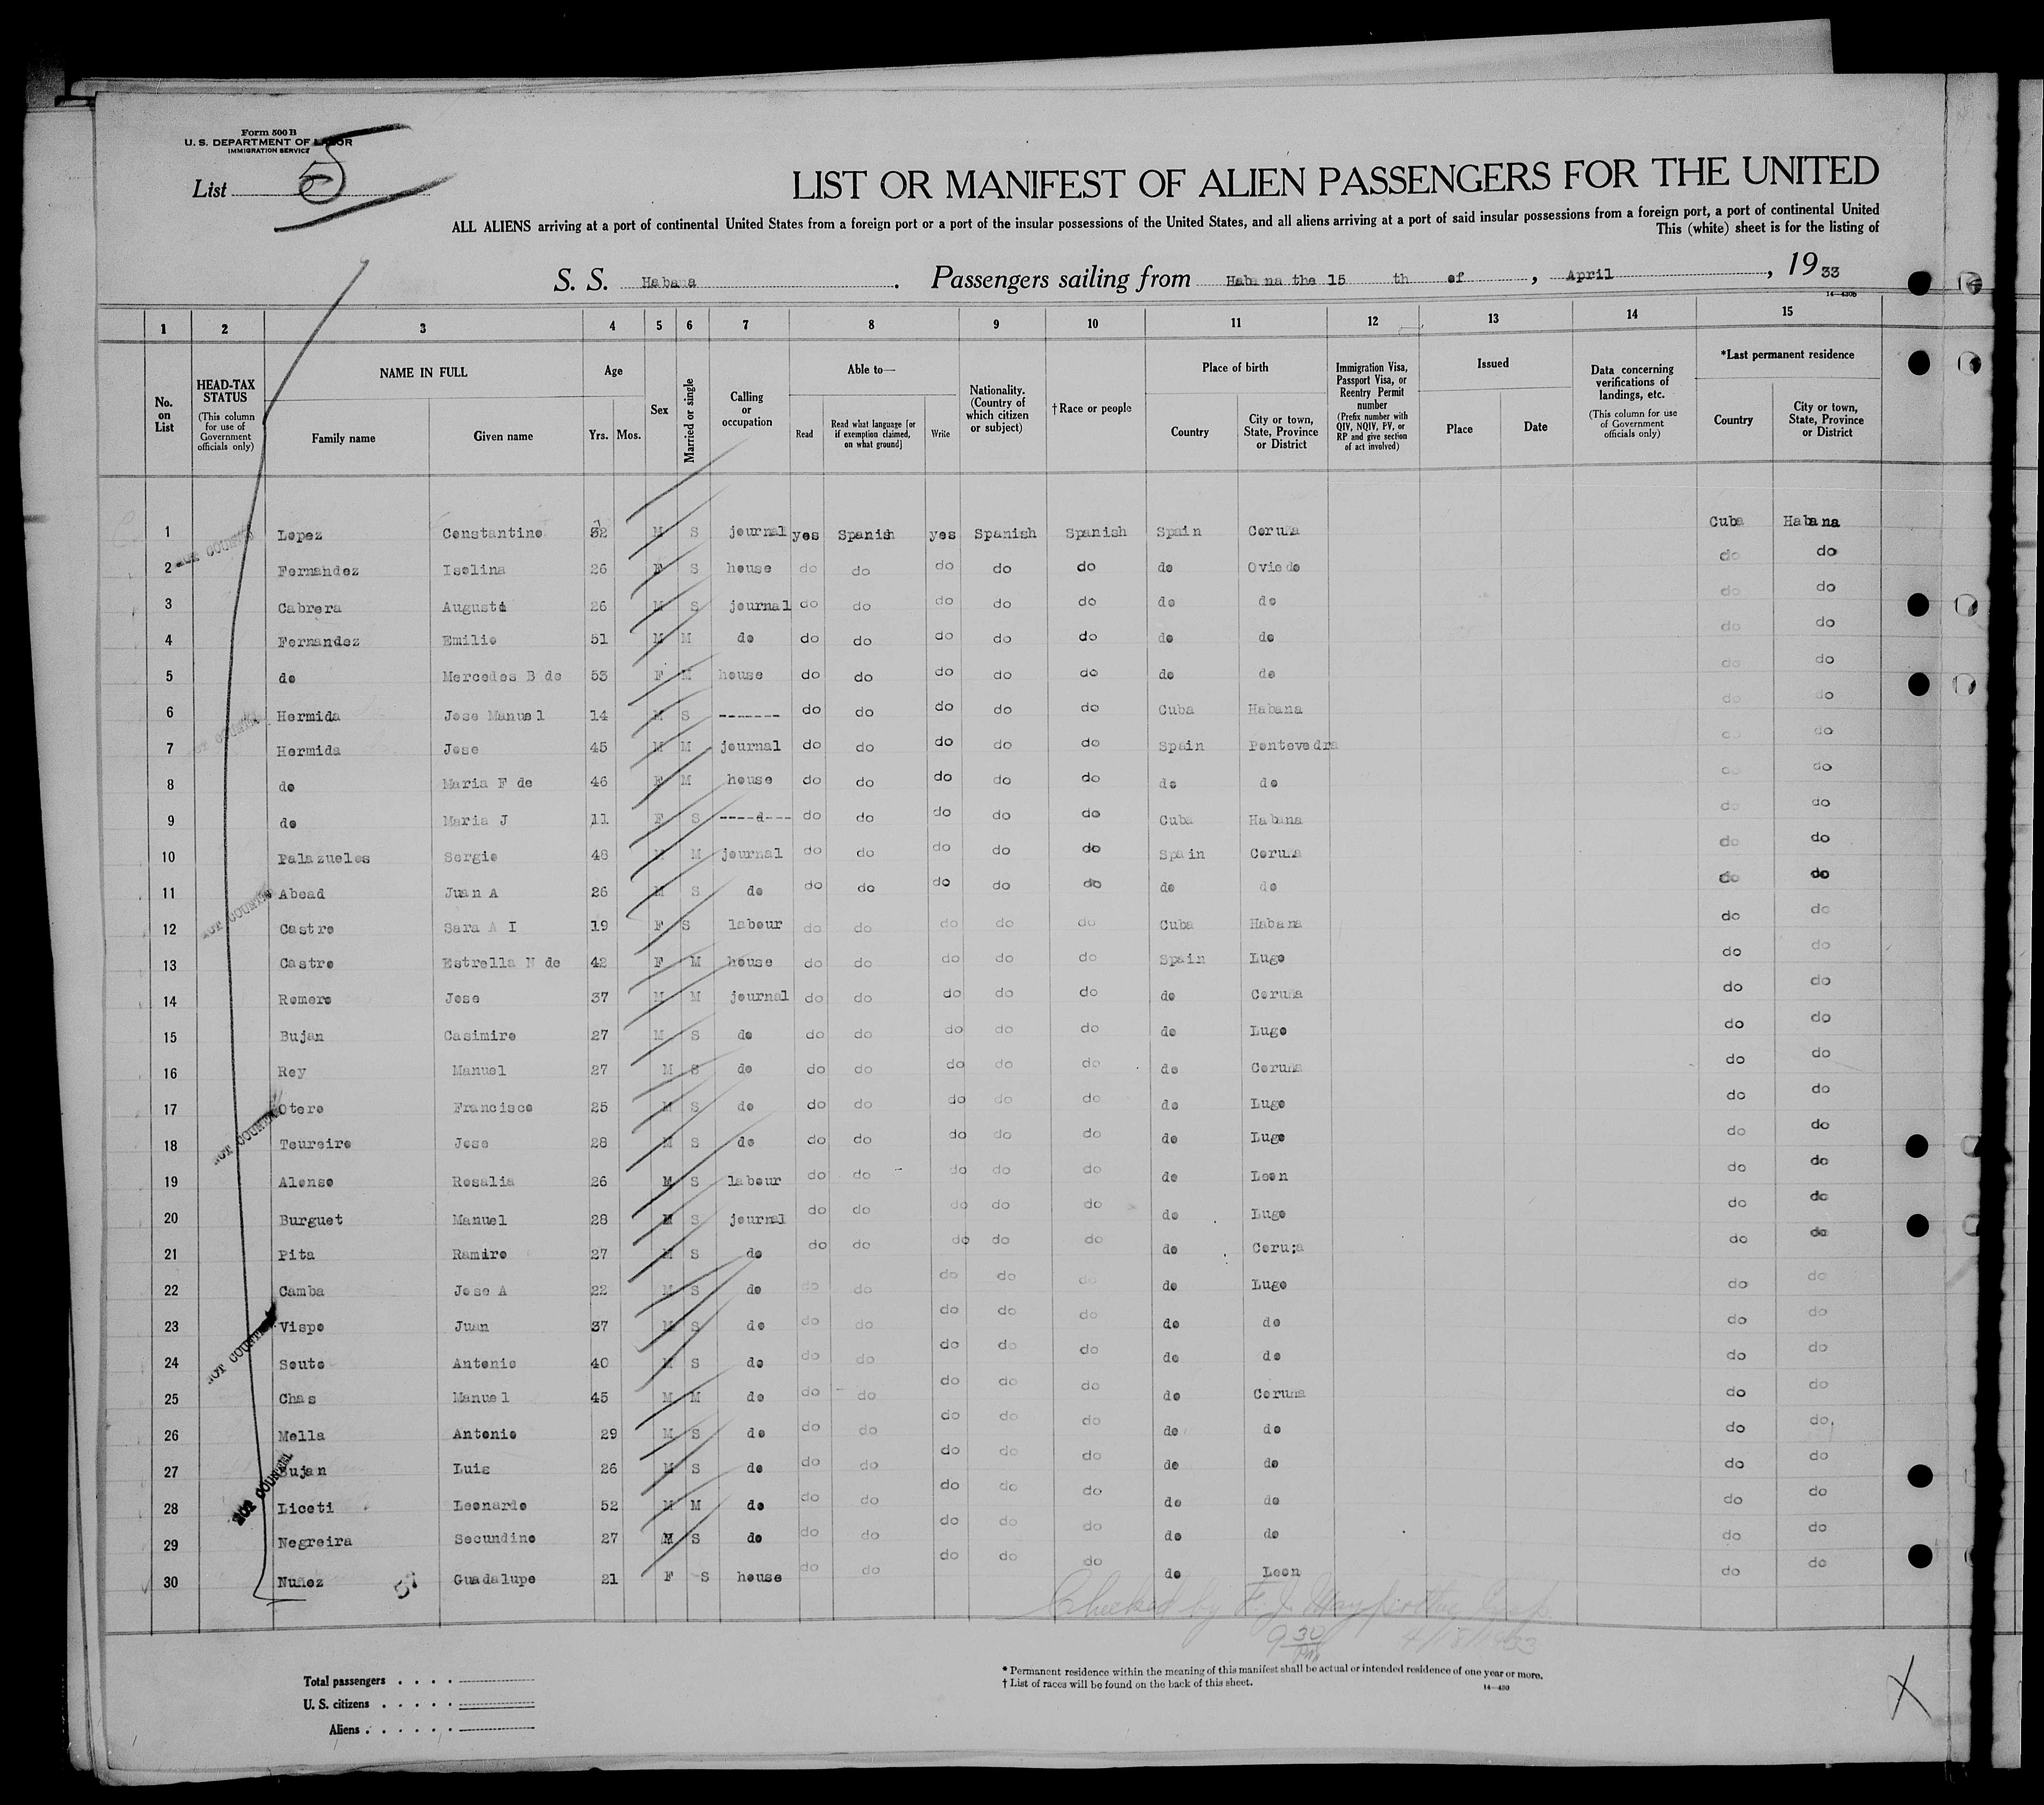 Form 500 B
U. S. DEPARTMENT OF LABOR
IMMIGRATION SERVICE
List 5
LIST OR MANIFEST OF ALIEN PASSENGERS FOR THE UNITED
ALL ALIENS arriving at a port of continental United States from a foreign port or a port of the insular possessions of the United States, and all aliens arriving at a port of said insular possessions from a foreign port, a port of continental United
This (white) sheet is for the listing of
S. S. Habana. Passengers sailing from Habana the 15 th of, April, 1933
14—430b
1 2 3 4 5 6 7 8 9 10 11 12 13 14 15
No. on List
HEAD-TAX STATUS (This column for use of Government officials only)
NAME IN FULL Family name Given name
Age Yrs. Mos.
Sex
Married or single
Calling or occupation
Able to— Read Read what language [or if exemption claimed, on what ground] Write
Nationality. (Country of which citizen or subject)
†Race or people
Place of birth Country City or town, State, Province or District
Immigration Visa, Passport Visa, or Reentry Permit number (Prefix number with QIV, NQIV, PV, or RP and give section of act involved)
Issued Place Date
Data concerning verifications of landings, etc. (This column for use of Government officials only)
*Last permanent residence Country City or town, State, Province or District
1 Lopez Constantino 32 M S journal yes Spanish yes Spanish Spanish Spain Coruña Cuba Habana
2 Fernandez Isolina 26 F S house do do do do do do Oviedo do do
3 Cabrera Augusto 26 M S journal do do do do do do do do do
4 Fernandez Emilio 51 M M do do do do do do do do do do
5 do Mercedes B de 53 F M house do do do do do do do do do
6 Hermida Jose Manuel 14 M S ------- do do do do do Cuba Habana do do
7 Hermida Jose 45 M M journal do do do do do Spain Pontevedra do do
8 do Maria F de 46 F M house do do do do do do do do do
9 do Maria J 11 F S ----d--- do do do do do Cuba Habana do do
10 Palazuelos Sergio 48 M M journal do do do do do Spain Coruña do do
11 Abead Juan A 26 M S do do do do do do do do do do
12 Castro Sara A I 19 F S labour do do do do do Cuba Habana do do
13 Castro Estrella N de 42 F M house do do do do do Spain Lugo do do
14 Romero Jose 37 M M journal do do do do do do Coruña do do
15 Bujan Casimiro 27 M S do do do do do do do Lugo do do
16 Rey Manuel 27 M S do do do do do do do Coruña do do
17 Otero Francisco 25 M S do do do do do do do Lugo do do
18 Toureiro Jose 28 M S do do do do do do do Lugo do do
19 Alonso Rosalia 26 M S labour do do do do do do Leon do do
20 Burguet Manuel 28 M S journal do do do do do do Lugo do do
21 Pita Ramiro 27 M S do do do do do do do Coruña do do
22 Camba Jose A 22 M S do do do do do do do Lugo do do
23 Vispo Juan 37 M S do do do do do do do do do do
24 Souto Antonio 40 M S do do do do do do do do do do
25 Chas Manuel 45 M M do do do do do do do Coruña do do
26 Mella Antonio 29 M S do do do do do do do do do do
27 Bujan Luis 26 M S do do do do do do do do do do
28 Liceti Leonardo 52 M M do do do do do do do do do do
29 Negreira Secundino 27 M S do do do do do do do do do do
30 Nuñez Guadalupe 21 F S house do do do do do do Leon do do
NOT COUNTED
NOT COUNTED
NOT COUNTED
NOT COUNTED
NOT COUNTED
NOT COUNTED
Checked by F. J.
9 30 PM 4/18/1933
Total passengers
U. S. citizens
Aliens
* Permanent residence within the meaning of this manifest shall be actual or intended residence of one year or more.
† List of races will be found on the back of this sheet.
14—430
X